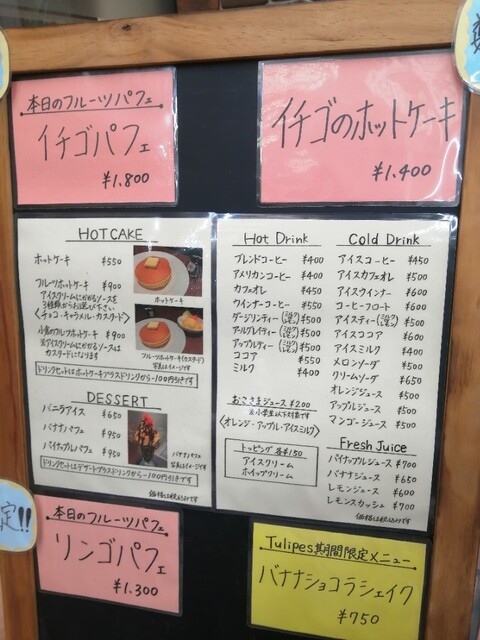 本日のフルーツパフェ
イチゴパフェ
¥1.800
イチゴのホットケーキ
¥1.400
HOTCAKE
ホットケーキ ¥550
フルーツホットケーキ ¥900
アイスクリームにかけるソースを
3種類からお選び下さい。
<チョコ・キャラメル・カスタード>
小倉のフルーツホットケーキ ¥900
※アイスクリームにかけるソースは
カスタードになります
ドリンクセットはホットケーキプラスドリンクから-100円引きです
ホットケーキ
フルーツホットケーキ(カスタード)
写真はイメージです
DESSERT
バニラアイス ¥650
バナナパフェ ¥950
パイナップルパフェ ¥950
バナナパフェ
写真はイメージです
ドリンクセットはデザートプラスドリンクから-100円引きです
価格は税込みです
Hot Drink
ブレンドコーヒー ¥400
アメリカンコーヒー ¥400
カフェオレ ¥450
ウインナーコーヒー ¥550
ダージリンティー (ミルク レモン) ¥500
アールグレイティー (ミルク レモン) ¥500
アップルティー (ミルク レモン) ¥500
ココア ¥550
ミルク ¥400
おこさまジュース ¥200
※小学生以下対象です
<オレンジ・アップル・アイスミルク>
トッピング 各¥150
アイスクリーム
ホイップクリーム
Cold Drink
アイスコーヒー ¥450
アイスカフェオレ ¥500
アイスウインナー ¥600
コーヒーフロート ¥600
アイスティー (ミルク レモン) ¥500
アイスココア ¥600
アイスミルク ¥400
メロンソーダ ¥500
クリームソーダ ¥650
オレンジジュース ¥500
アップルジュース ¥500
マンゴージュース ¥500
Fresh Juice
パイナップルジュース ¥700
バナナジュース ¥650
レモンジュース ¥600
レモンスカッシュ ¥700
価格は税込みです
定!!
本日のフルーツパフェ
リンゴパフェ
¥1.300
Tulipes期間限定メニュー
バナナショコラシェイク
¥750